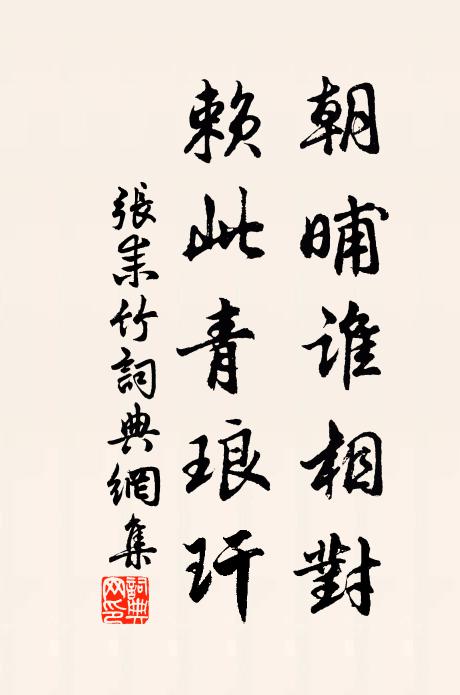 朝晡誰相對
賴此青琅玕
張耒竹詞典網集
詞典网印